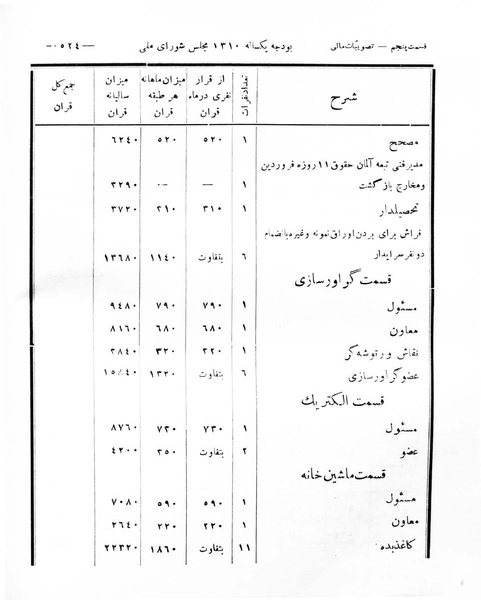 قسمت پنجم – تصویبات مالی بودجه یکساله ۱۳۱۰ مجلس شورای ملی —۵۲٤—
شرح تعداد نفرات از قرار نفری در ماه قران میزان ماهانه هر طبقه قران میزان سالیانه قران جمع کل قران
مصحح ۱ ۵۲۰ ۵۲۰ ۶۲٤۰
مدیر فنی تبعه آلمان حقوق ۱۱ روزه فروردین
و مخارج بازگشت ۱ — — ۳۲۹۰
تحصیلدار ۱ ۳۱۰ ۳۱۰ ۳۷۲۰
فراش برای بردن اوراق نمونه و غیره بانضمام
دو نفر سرایدار ۶ بتفاوت ۱۱٤۰ ۱۳۶۸۰
قسمت گراورسازی
مسئول ۱ ۷۹۰ ۷۹۰ ۹٤۸۰
معاون ۱ ۶۸۰ ۶۸۰ ۸۱۶۰
نقاش و رتوشه گر ۱ ۳۲۰ ۳۲۰ ۳۸٤۰
عضو گراورسازی ۶ بتفاوت ۱۳۲۰ ۱۵۸٤۰
قسمت الکتریک
مسئول ۱ ۷۳۰ ۷۳۰ ۸۷۶۰
عضو ۲ بتفاوت ۳۵۰ ٤۲۰۰
قسمت ماشین خانه
مسئول ۱ ۵۹۰ ۵۹۰ ۷۰۸۰
معاون ۱ ۲۲۰ ۲۲۰ ۲۶٤۰
کاغذبده ۱۱ بتفاوت ۱۸۶۰ ۲۲۳۲۰